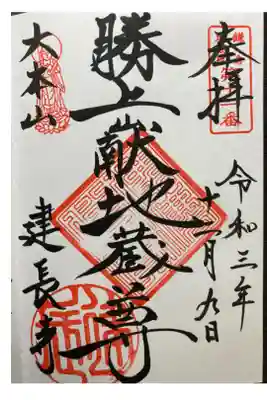 奉拝
令和三年
十二月九日
勝上献地蔵尊
大本山
建長寺